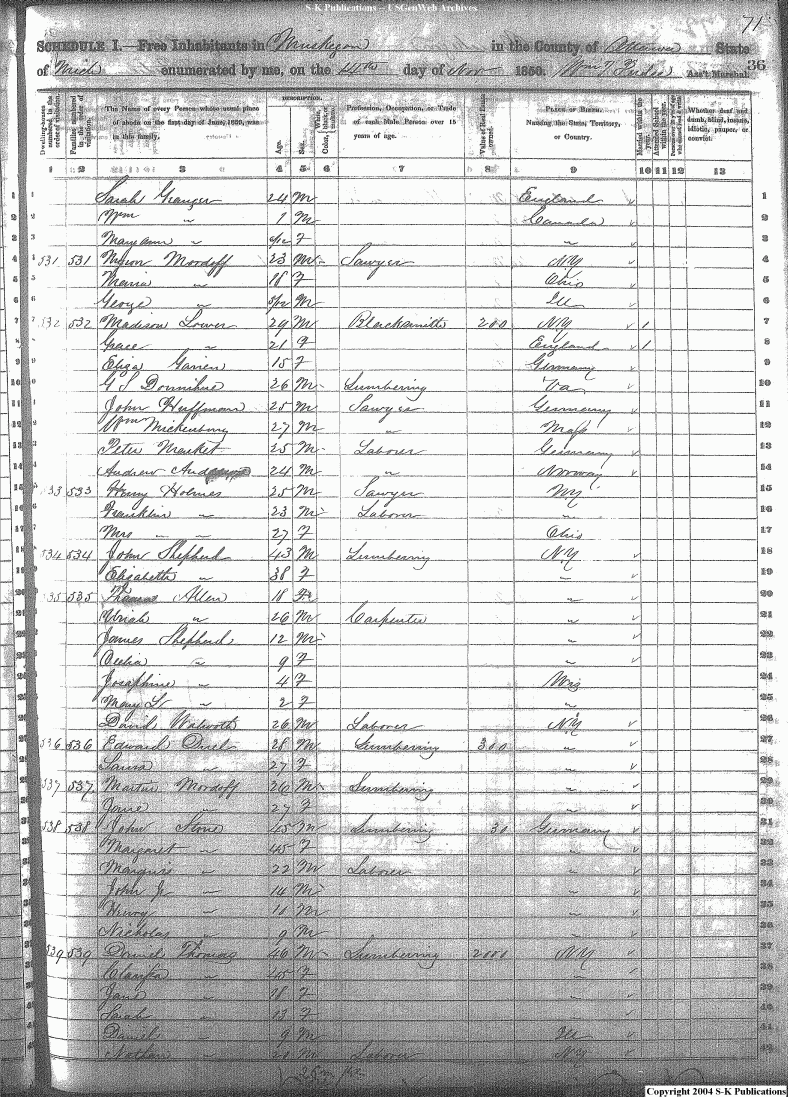 S-K Publications – USGenWeb Archives
71
SCHEDULE I.—Free Inhabitants in Muskegon in the County of Ottawa State
36
of Mich enumerated by me, on the 14th day of Nov 1850. Wm T Ass't Marshal.
Dwelling-houses numbered in the order of visitation.
Families numbered in the order of visitation.
The Name of every Person whose usual place of abode on the first day of June, 1850, was in this family.
DESCRIPTION.
Age.
Sex.
Color,
Profession, Occupation, or Trade of each Male Person over 15 years of age.
Value of Real Estate owned.
PLACE OF BIRTH, Naming the State, Territory, or Country.
Married within the year.
Attended School within the year.
Whether deaf and dumb, blind, insane, idiotic, pauper, or convict.
1 2 3 4 5 6 7 8 9 10 11 12 13
1 Sarah Granger 24 M England 1
2 Wm " 1 M Canada 2
3 Mary Ann " /12 F " 3
4 531 531 Mordoff 23 M Sawyer NY 4
5 Maria " 18 F Ohio 5
6 George " 3/12 M Ill 6
7 532 532 Madison Lower 29 M Blacksmith 200 NY 1 7
8 Grace " 21 F England 1 8
9 Eliza 15 F Germany 9
10 G S Donnihue 26 M Lumbering Va 10
11 John Huffman 25 M Sawyer Germany 11
12 Wm Mickenburg 27 M " Mass 12
13 Peter Market 25 M Laborer Germany 13
14 Andrew 24 M " Norway 14
15 533 533 Henry Holmes 25 M Sawyer NY 15
16 Franklin " 23 M Laborer " 16
17 Mrs " " 27 F Ohio 17
18 534 534 John Shepherd 43 M Lumbering NY 18
19 Elizabeth " 38 F " 19
20 535 535 Allen 18 F " 20
21 Uriah " 26 M Carpenter " 21
22 James Shepherd 12 M " 22
23 Cecelia " 9 F " 23
24 Josephine " 4 F Wis 24
25 Mary " 2 F " 25
26 David Walworth 26 M Laborer NY 26
27 536 536 Edward 28 M Lumbering 300 " 27
28 Laura " 27 F " 28
29 537 537 Martin Mordoff 26 M Lumbering " 29
30 Jane " 27 F " 30
31 538 538 John Stone 45 M Lumbering 30 Germany 31
32 Margaret " 45 F " 32
33 " 22 M Laborer " 33
34 John Jr " 14 M " 34
35 Henry " 11 M " 35
36 Nicholas " 9 M " 36
37 539 539 Daniel Thomas 46 M Lumbering 2000 NY 37
38 " 45 F " 38
39 Jane " 18 F " 39
40 Sarah " 13 F " 40
41 Daniel " 9 M Ill 41
42 Nathan " 21 M Laborer NY 42
Copyright 2004 S-K Publications